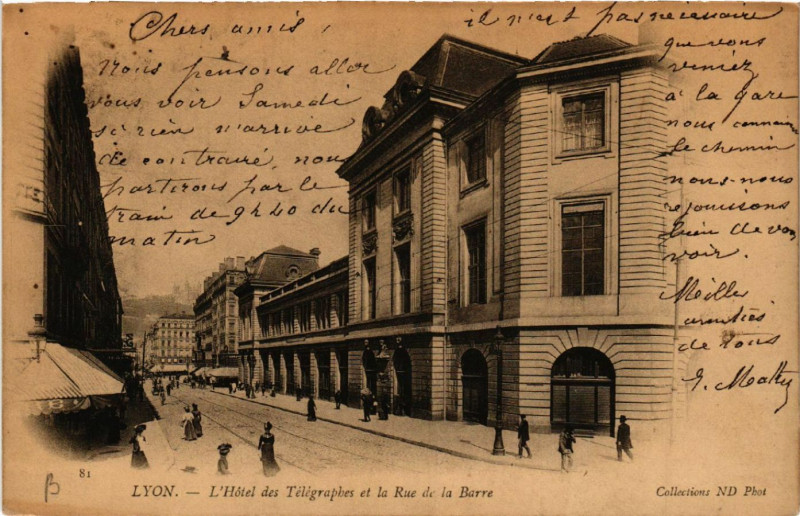 Chers amis,
Nous pensons aller
vous voir Samedi
si rien n'arrive
de contraire, nous
partirons par le
train de 9h 40 du
matin
il n'est pas nécessaire
que vous
veniez
à la gare
nous connaissons
le chemin
nous-nous
réjouissons
bien de vous
voir.
Meilleures
amitiés
de tous
81
LYON. — L'Hôtel des Télégraphes et la Rue de la Barre
Collections ND Phot